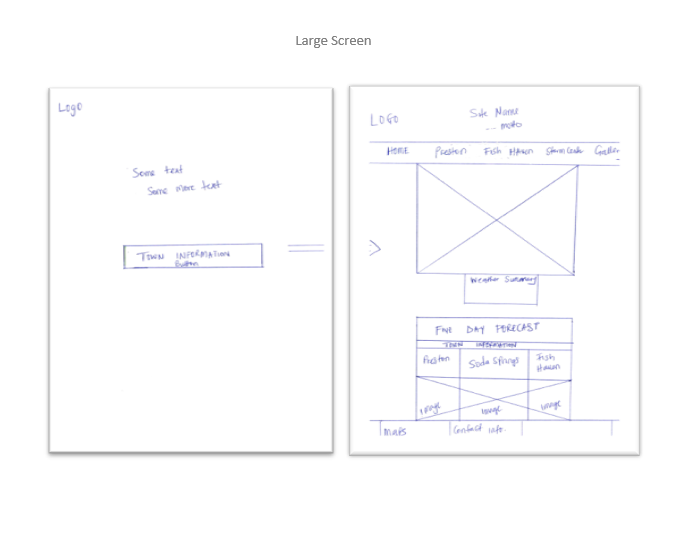 Large Screen
Logo
Some text
Some more text
TOWN INFORMATION
Button
LOGO
Site Name
-- motto
HOME Preston Fish Haven Storm Center Galler
Weather Summary
FIVE DAY FORECAST
TOWN INFORMATION
Preston Soda Springs Fish Haven
image image image
MAPS Contact info.